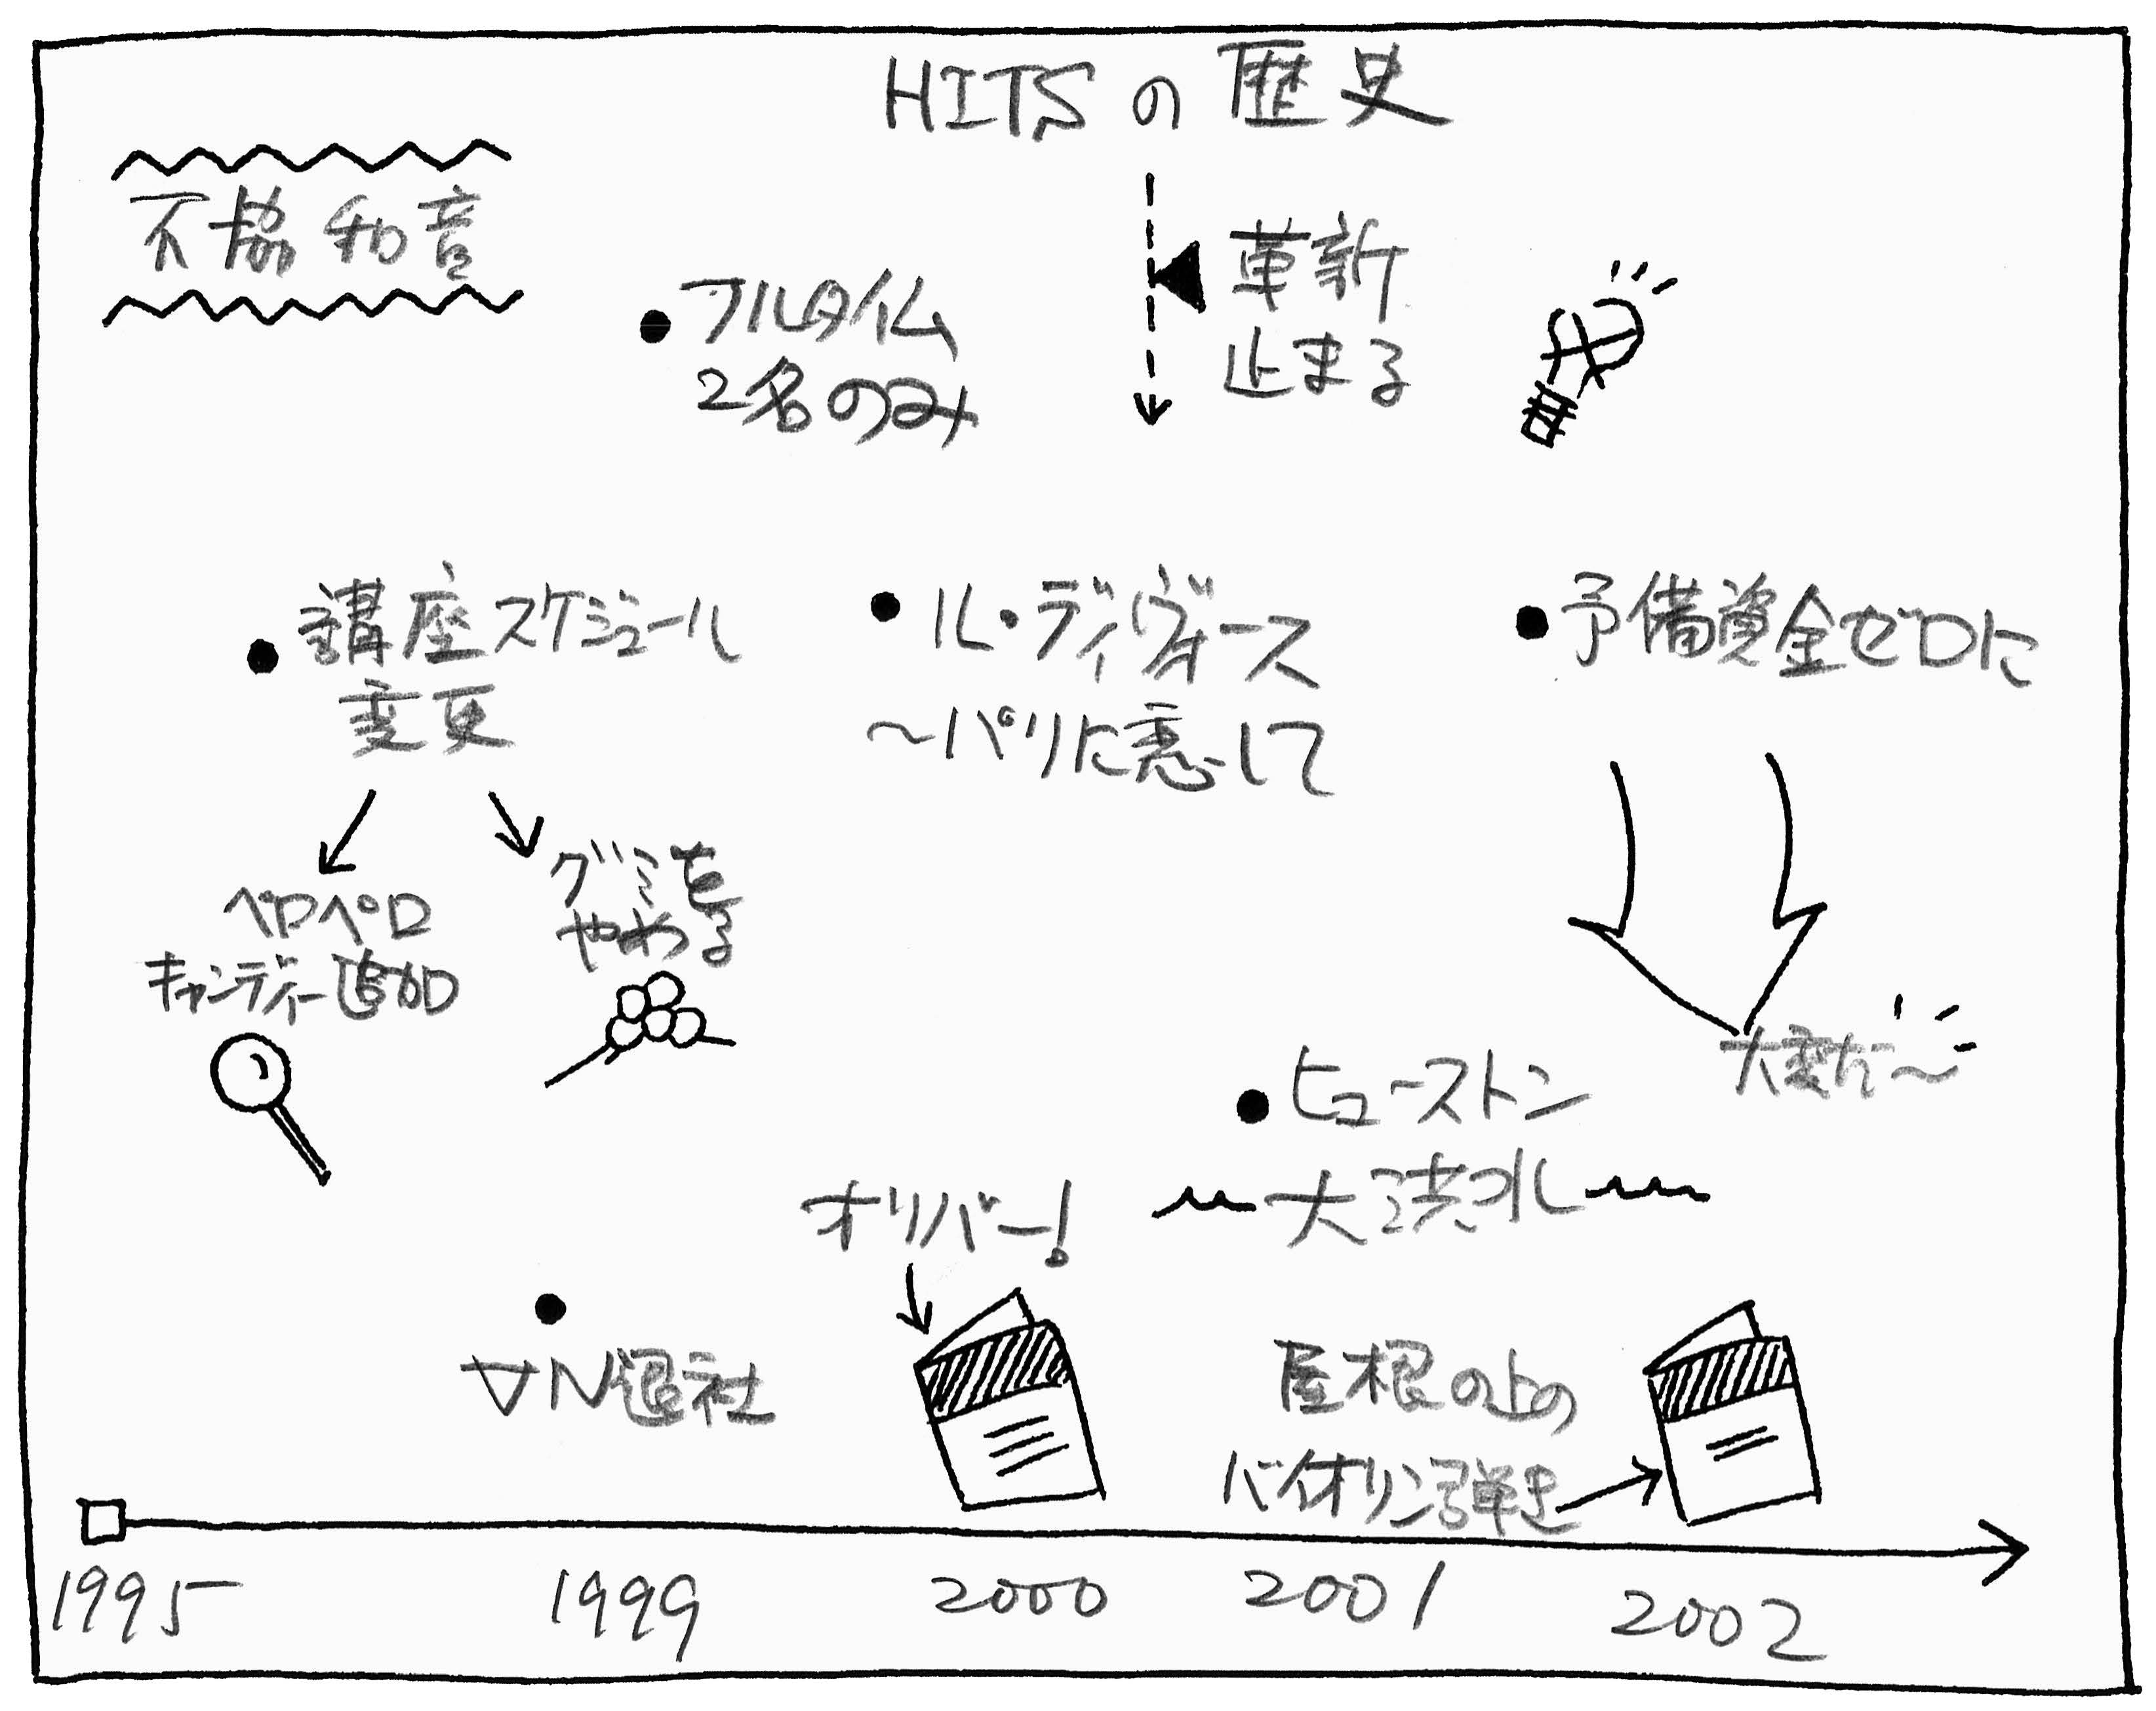 HITSの歴史
不協和音
フルタイム
2名のみ
革新
止まる
講座スケジュール
変更
ペロペロ
キャンディー追加
グミを
やめる
ル・ディヴォース
〜パリに恋して
予備資金ゼロに
大変だ〜
ヒューストン
大洪水
オリバー!
VN退社
屋根の上の
バイオリン弾き
1995
1999
2000
2001
2002